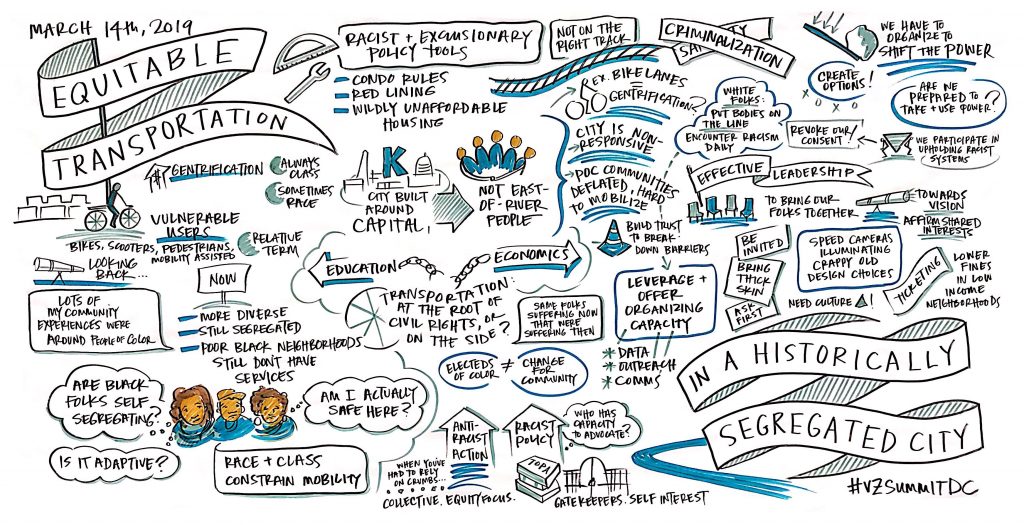 MARCH 14th, 2019
EQUITABLE
TRANSPORTATION
RACIST + EXCLUSIONARY
POLICY TOOLS
CONDO RULES
RED LINING
WILDLY UNAFFORDABLE
HOUSING
NOT ON THE
RIGHT TRACK
CRIMINALIZATION
WE HAVE TO
ORGANIZE TO
SHIFT THE POWER
CREATE
OPTIONS!
ARE WE
PREPARED TO
TAKE + USE POWER?
EX. BIKE LANES
=
GENTRIFICATION?
CITY IS NON-
RESPONSIVE
POC COMMUNITIES
DEFLATED, HARD
TO MOBILIZE
WHITE
FOLKS:
PUT BODIES ON
THE LINE
ENCOUNTER RACISM
DAILY
REVOKE OUR
CONSENT!
WE PARTICIPATE IN
UPHOLDING RACIST
SYSTEMS
GENTRIFICATION
ALWAYS
CLASS
SOMETIMES
RACE
RELATIVE
TERM
K
CITY BUILT
AROUND
CAPITAL,
NOT EAST-
OF-RIVER
PEOPLE
VULNERABLE
USERS
BIKES, SCOOTERS, PEDESTRIANS,
MOBILITY ASSISTED
LOOKING
BACK...
LOTS OF
MY COMMUNITY
EXPERIENCES WERE
AROUND PEOPLE OF COLOR
NOW
MORE DIVERSE
STILL SEGREGATED
POOR BLACK NEIGHBORHOODS
STILL DON'T HAVE
SERVICES
EDUCATION
ECONOMICS
TRANSPORTATION:
AT THE ROOT OF
CIVIL RIGHTS, OR
ON THE SIDE?
SAME FOLKS
SUFFERING NOW
THAT WERE
SUFFERING THEN
ELECTEDS
OF COLOR
≠
CHANGE
FOR
COMMUNITY
EFFECTIVE
LEADERSHIP
TO BRING OUR
FOLKS TOGETHER
TOWARDS
VISION
AFFIRM SHARED
INTERESTS
BUILD TRUST
TO BREAK
DOWN BARRIERS
LEVERAGE +
OFFER
ORGANIZING
CAPACITY
DATA
OUTREACH
COMMS
BE
INVITED
BRING
THICK
SKIN
ASK
FIRST
SPEED CAMERAS
ILLUMINATING
CRAPPY OLD
DESIGN CHOICES
NEED CULTURE Δ!
TICKETING
LOWER
FINES
IN LOW
INCOME
NEIGHBORHOODS
ARE BLACK
FOLKS SELF
SEGREGATING?
IS IT ADAPTIVE?
AM I ACTUALLY
SAFE HERE?
RACE + CLASS
CONSTRAIN MOBILITY
ANTI-
RACIST
ACTION
WHEN YOU'VE
HAD TO RELY
ON CRUMBS...
COLLECTIVE. EQUITY FOCUS.
RACIST
POLICY
TOPA
WHO HAS
CAPACITY
TO ADVOCATE?
GATEKEEPERS. SELF INTEREST
IN A HISTORICALLY
SEGREGATED CITY
#VZSUMMITDC